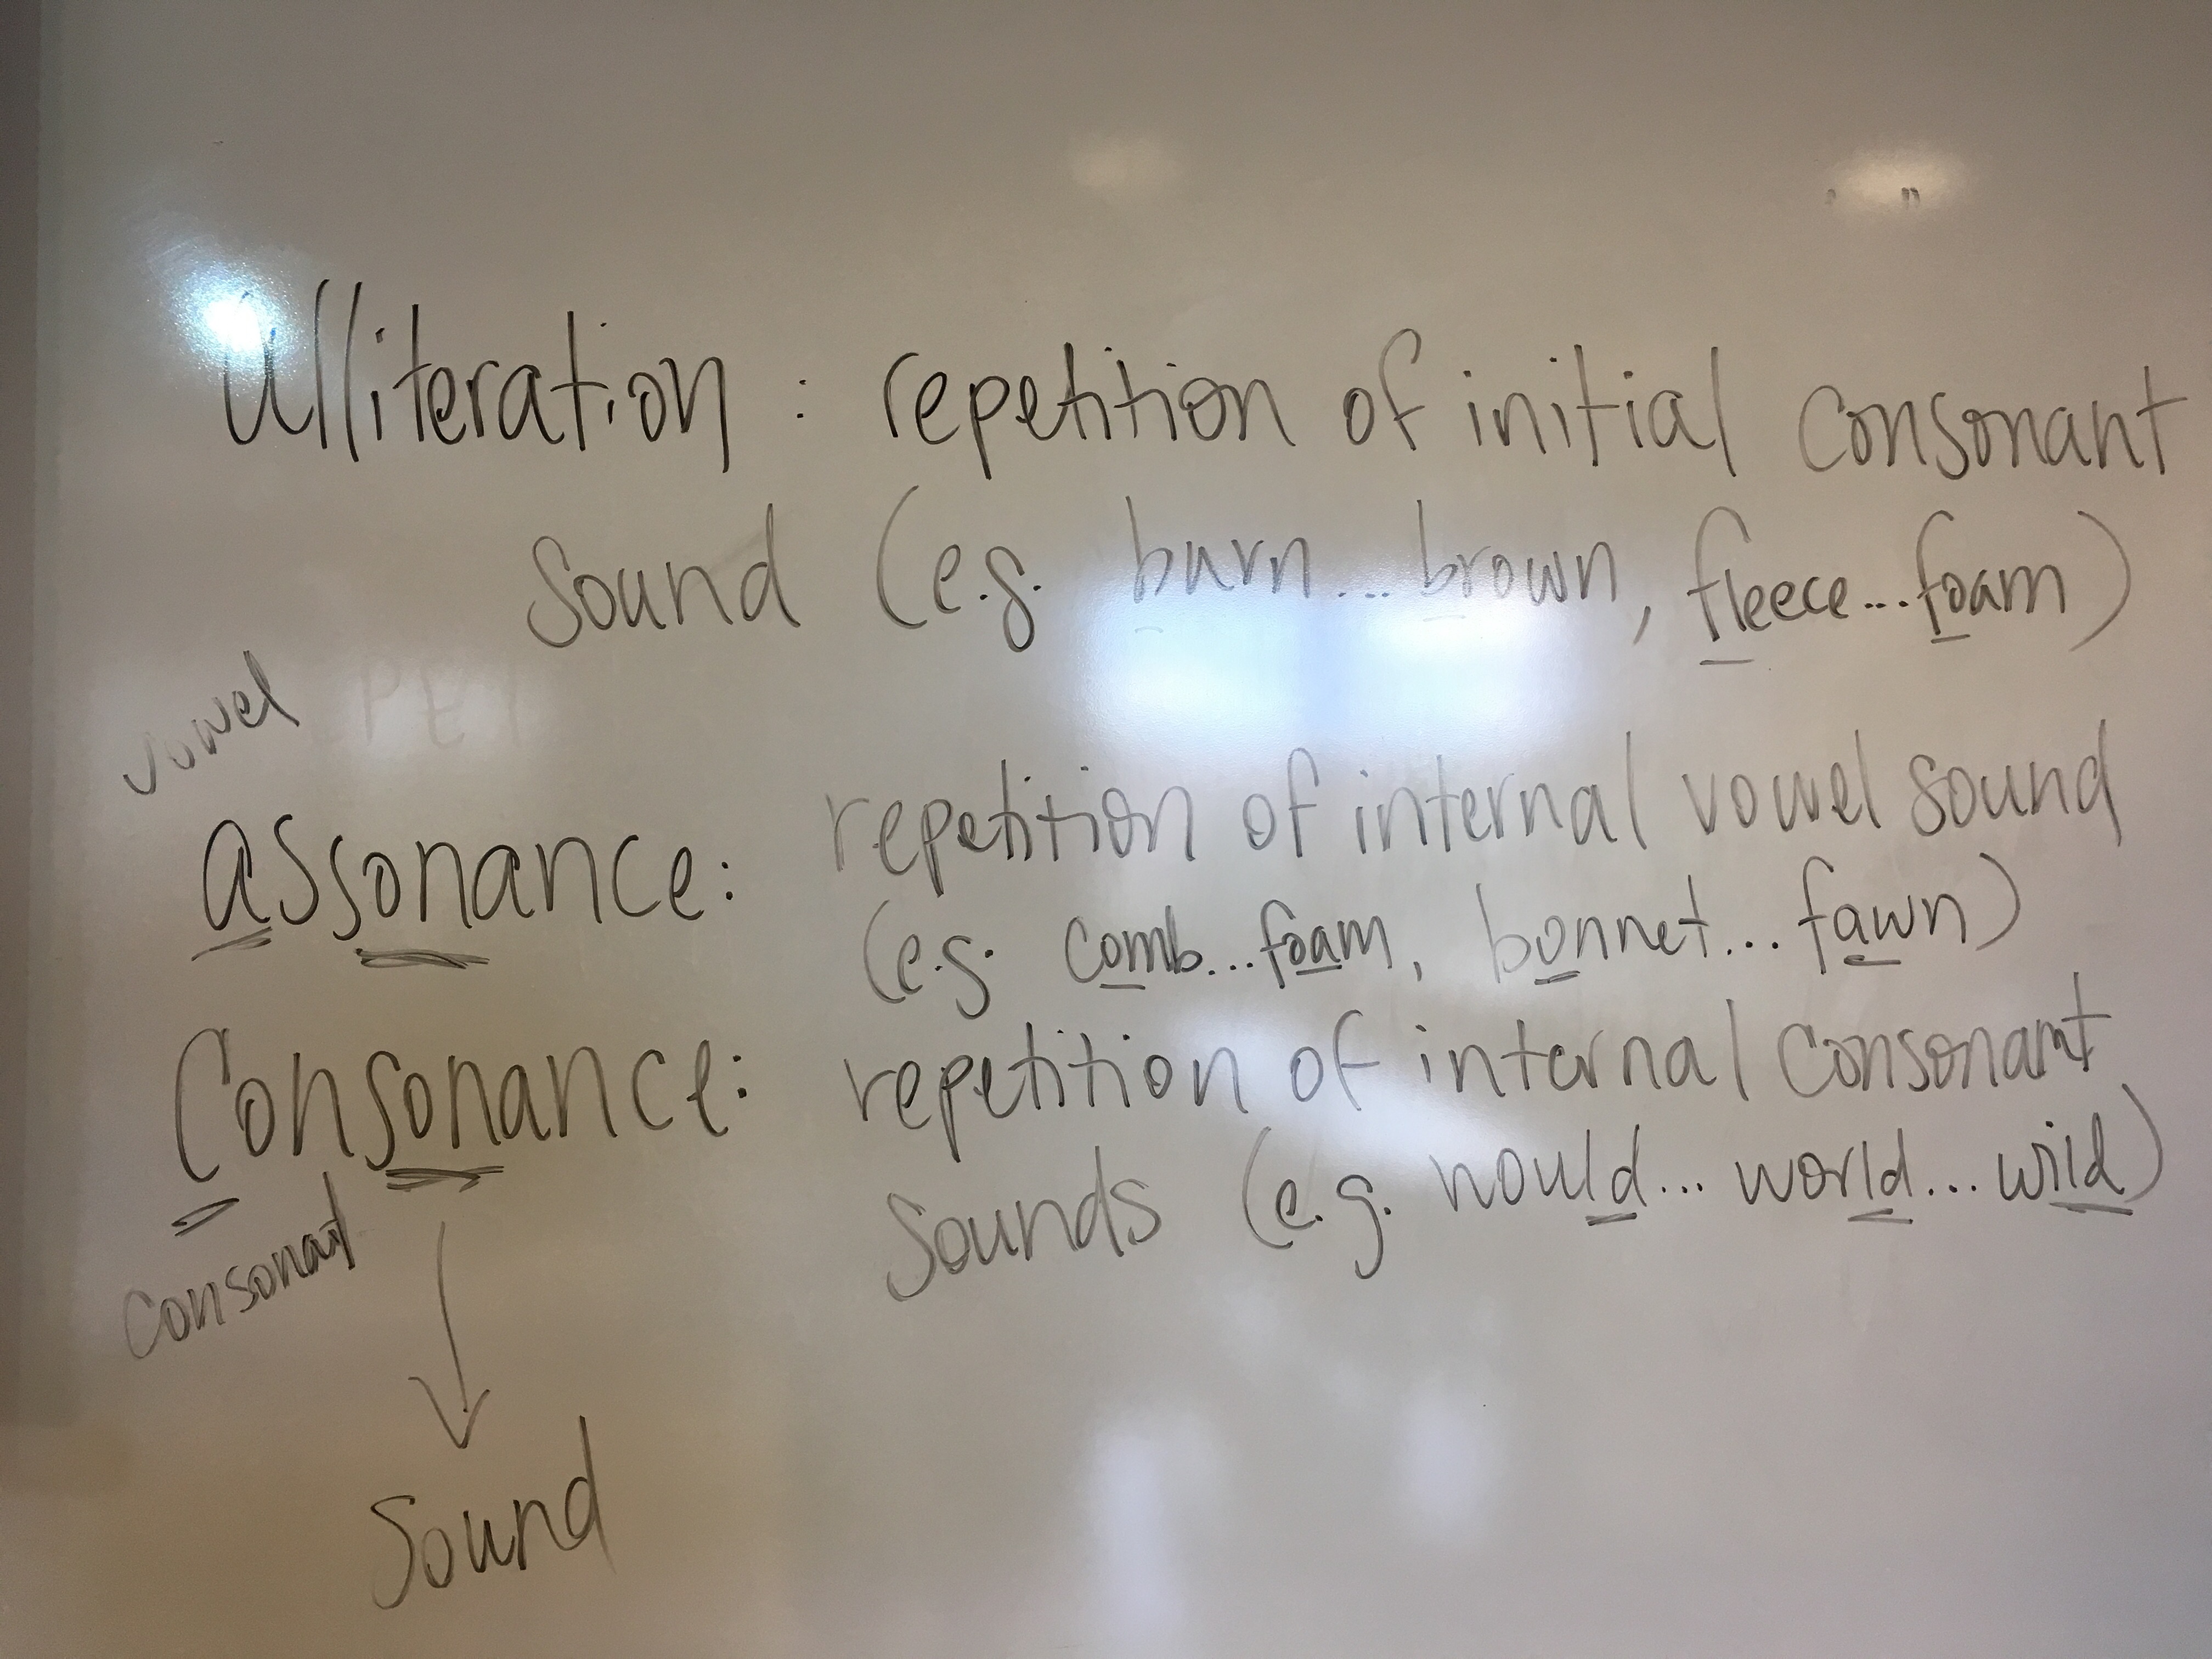 alliteration : repetition of initial consonant
sound (e.g. burn... brown, fleece... foam)
vowel
assonance: repetition of internal vowel sound
(e.g. comb... foam, bonnet... fawn)
Consonance: repetition of internal consonant
sounds (e.g. would... world... wild)
consonant
sound